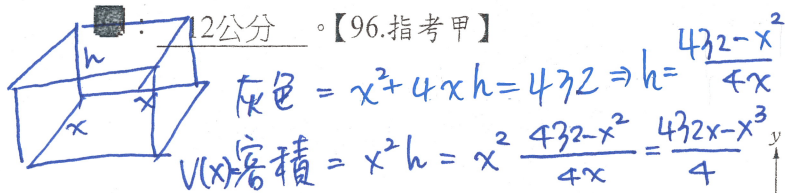 ：12公分。【96.指考甲】
h
x
x
灰色 = x²+4xh=432 ⇒ h= (432-x²)/(4x)
V(x)=容積 = x²h = x² (432-x²)/(4x) = (432x-x³)/4
y